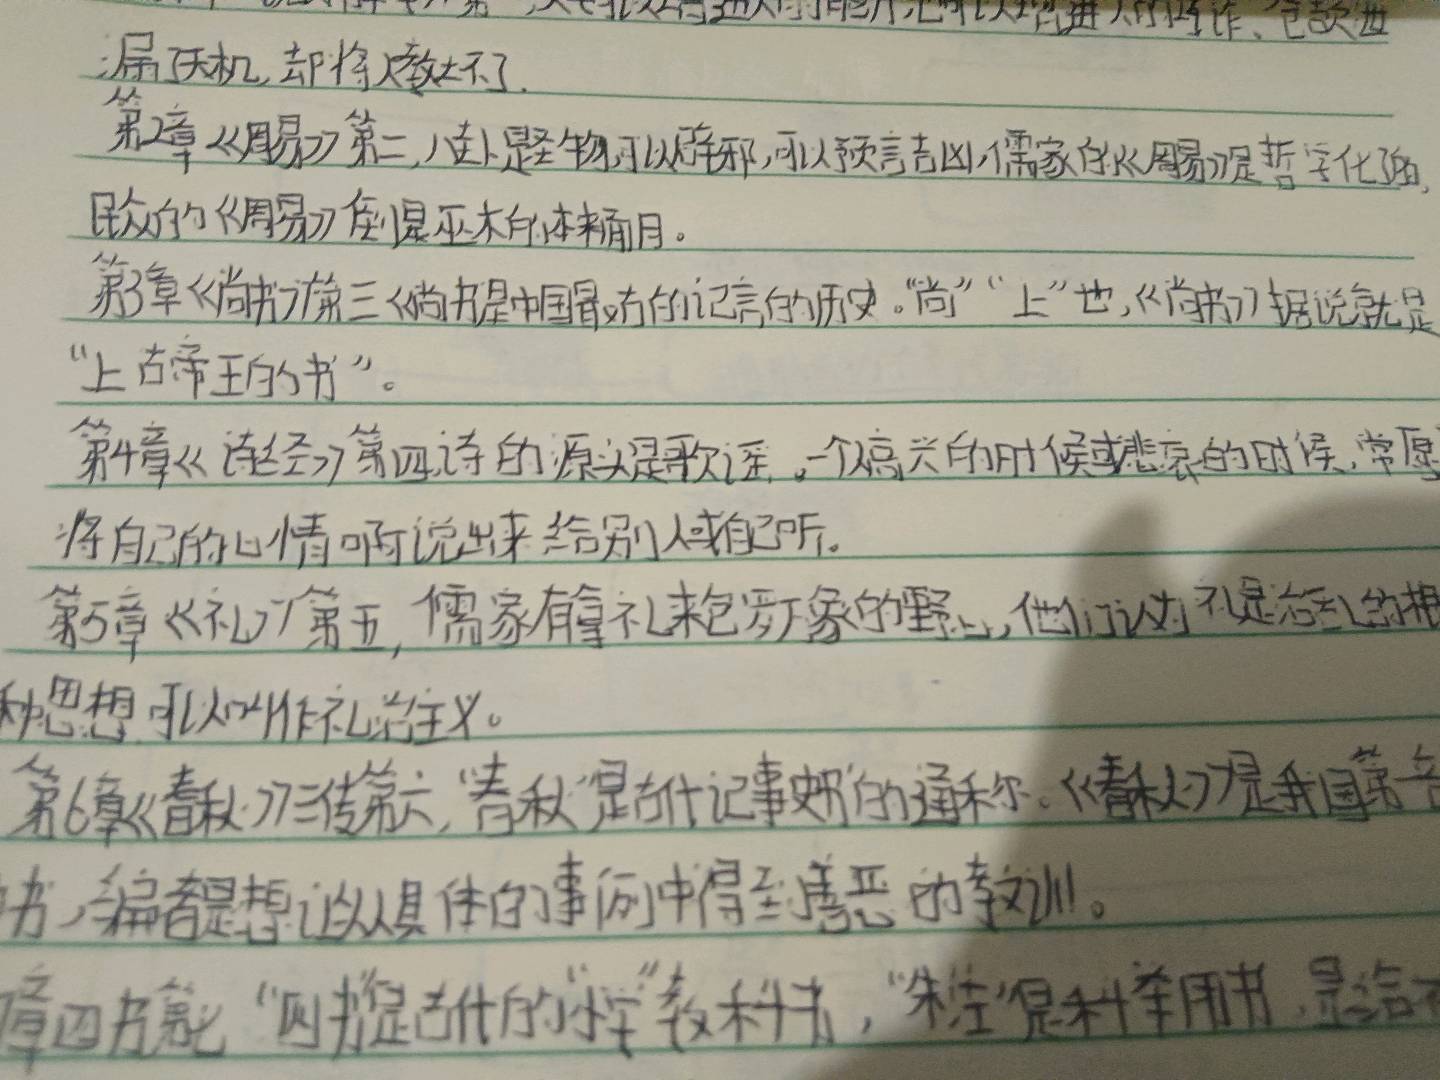 漏了天机,却将人教坏了.
第2章《周易》第二,八卦是圣物,可以辟邪,可以预言吉凶,儒家的《周易》是哲字化了的,
民众的《周易》倒是巫术的本来面目。
第3章《尚书》第三《尚书是中国最古的记言的历史。“尚”“上”也,《尚书》据说就是
“上古帝王的书”。
第4章《诗经》第四,诗的源头是歌谣。一个人高兴的时候或悲哀的时候,常愿
将自己的心情啊说出来给别人或自己听。
第5章《礼》第五,儒家有拿礼来包罗万象的野心,他们认为礼是治乱的根
种思想可以叫作礼治主义。
第6章《春秋》三传第六,“春秋”是古代记事史书的通称。《春秋》是我国第一
书,编者是想让人从具体的事例中得到善恶的教训。
章四书第七“四书”是古代的“小学”教科书,“朱注”是科举用书,是给不